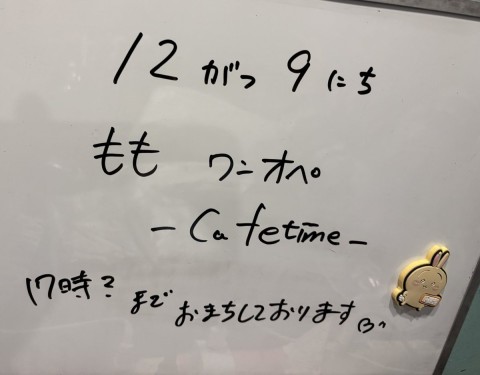 12がつ9にち
もも ワンオペ。
-Cafetime-
17時?までおまちしております